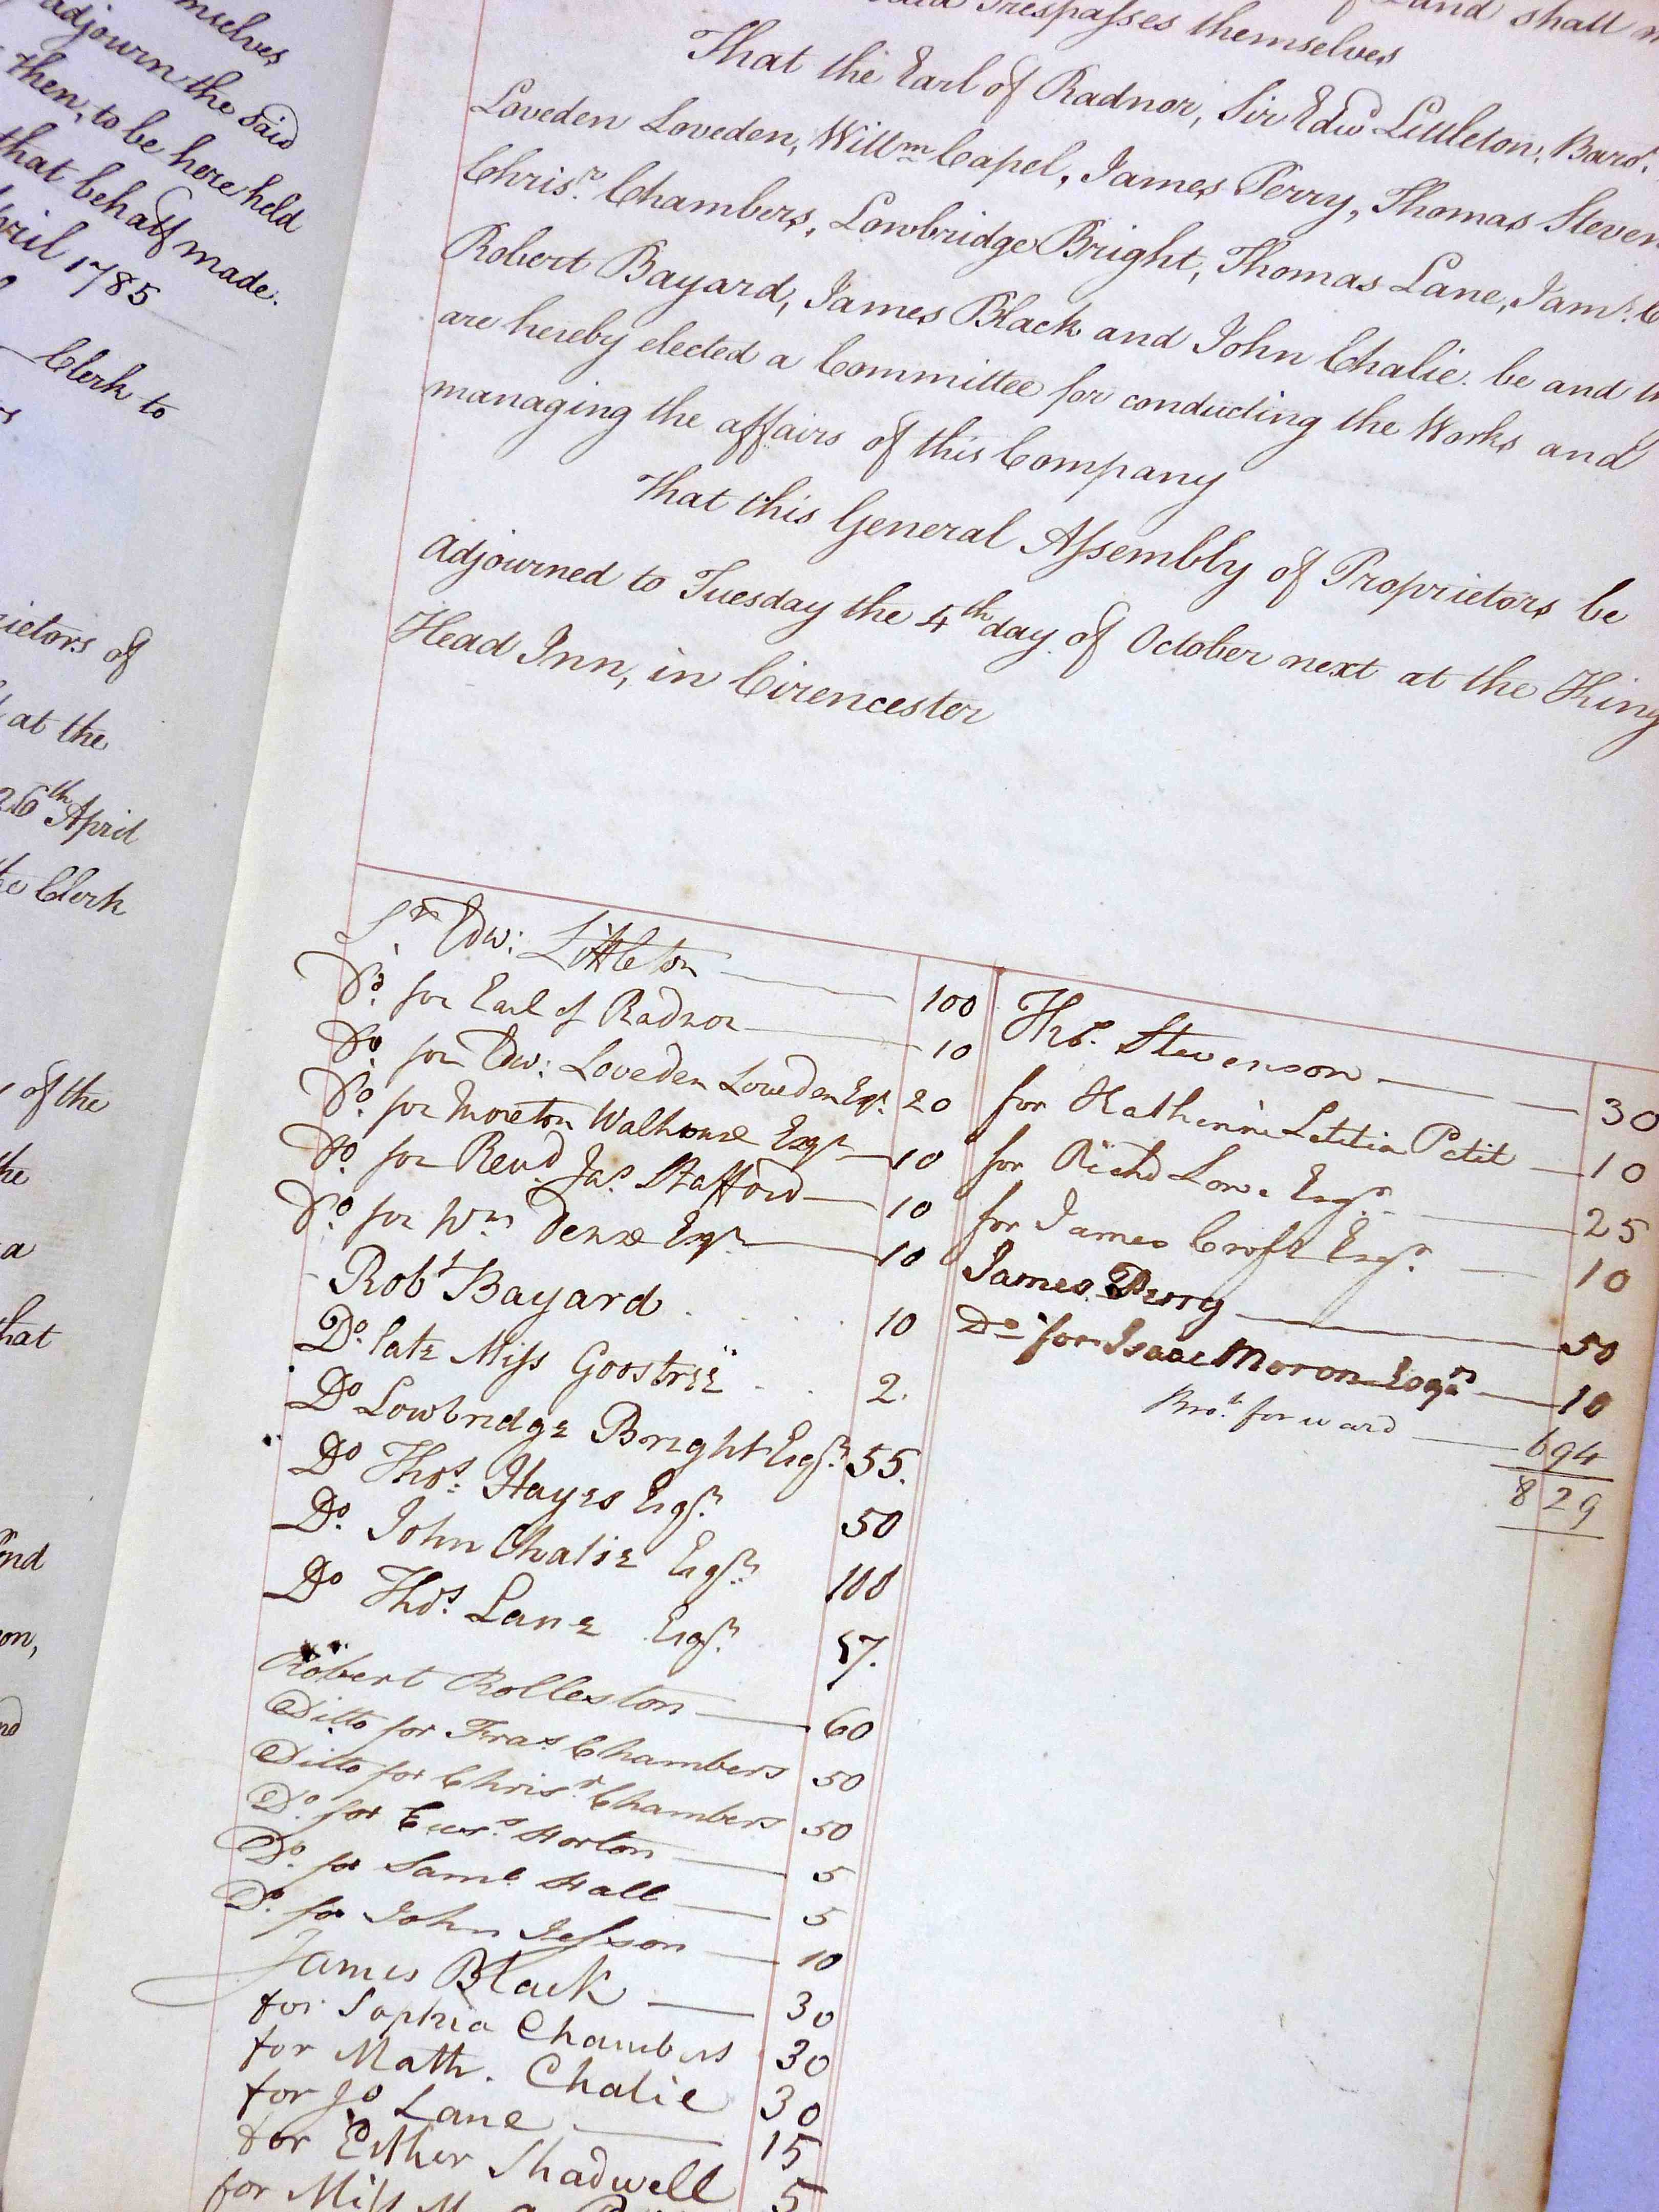 mselves
adjourn the said
then, to be here held
that behalf made.
April 1785
Clerk to
rietors of
at the
26th April
the Clerk
of the
the
a
that
on,
Trespasses themselves
of Land shall
That the Earl of Radnor, Sir Edwd Littleton, Barot.
Loveden Loveden, Willm Capel, James Perry, Thomas Steven
Chrisr. Chambers, Lowbridge Bright, Thomas Lane, Jams. C
Robert Bayard, James Black and John Chalie. be and th
are hereby elected a Committee for conducting the Works and
managing the affairs of this Company
That this General Assembly of Proprietors be
adjourned to Tuesday the 4th day of October next at the King
Head Inn, in Cirencester
Sr. Edw: Littleton 100
Do. for Earl of Radnor 10
Do. for Edw: Loveden Loveden Esqr. 20
Do. for Moreton Walhouse Esqr 10
Do. for Revd. Jas. Stafford 10
Do. for Wm Dense Esqr 10
Robt Bayard 10
Do. late Miss Goostree 2.
Do Lowbridge Bright Esqr. 55.
Do Thos. Hayes Esqr. 50
Do. John Chalie Esqr. 100
Do Thos. Lane Esqr. 57.
Robert Rolleston 60
Ditto for Fras. Chambers 50
Ditto for Chrisr. Chambers 50
Do. for Horton 5
Do. for Saml. Hall 5
Do. for John Jesson 10
James Black 30
for Sophia Chambers 30
for Math. Chalie 30
for Jo Lane 15
for Esther Shadwell 5
for Miss M.
Ths. Stevenson 30
for Katherine Letitia Petit 10
for Richd Lowe Esqr. 25
for James Croft Esqr. 10
James Perry 50
Do for Isaac Moron Esqr 10
Brot. forward 694
829